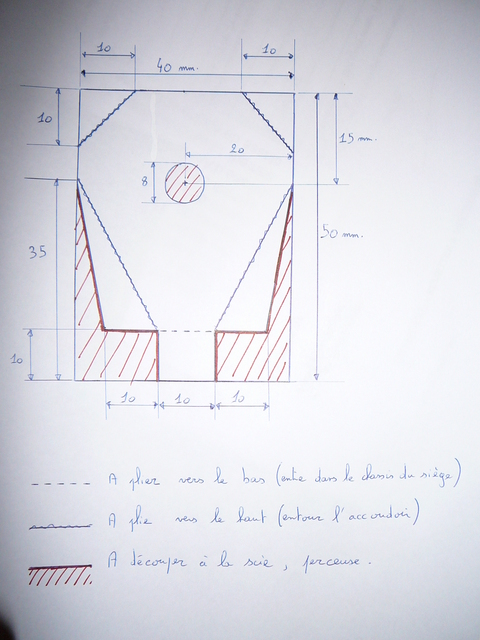 10
10
40 mm.
10
15 mm.
20
8
50 mm.
35
10
10
10
10
A plier vers le bas (entre dans le chassis du siège)
A plie vers le haut (entour l'accoudoir)
A découper à la scie, perceuse.